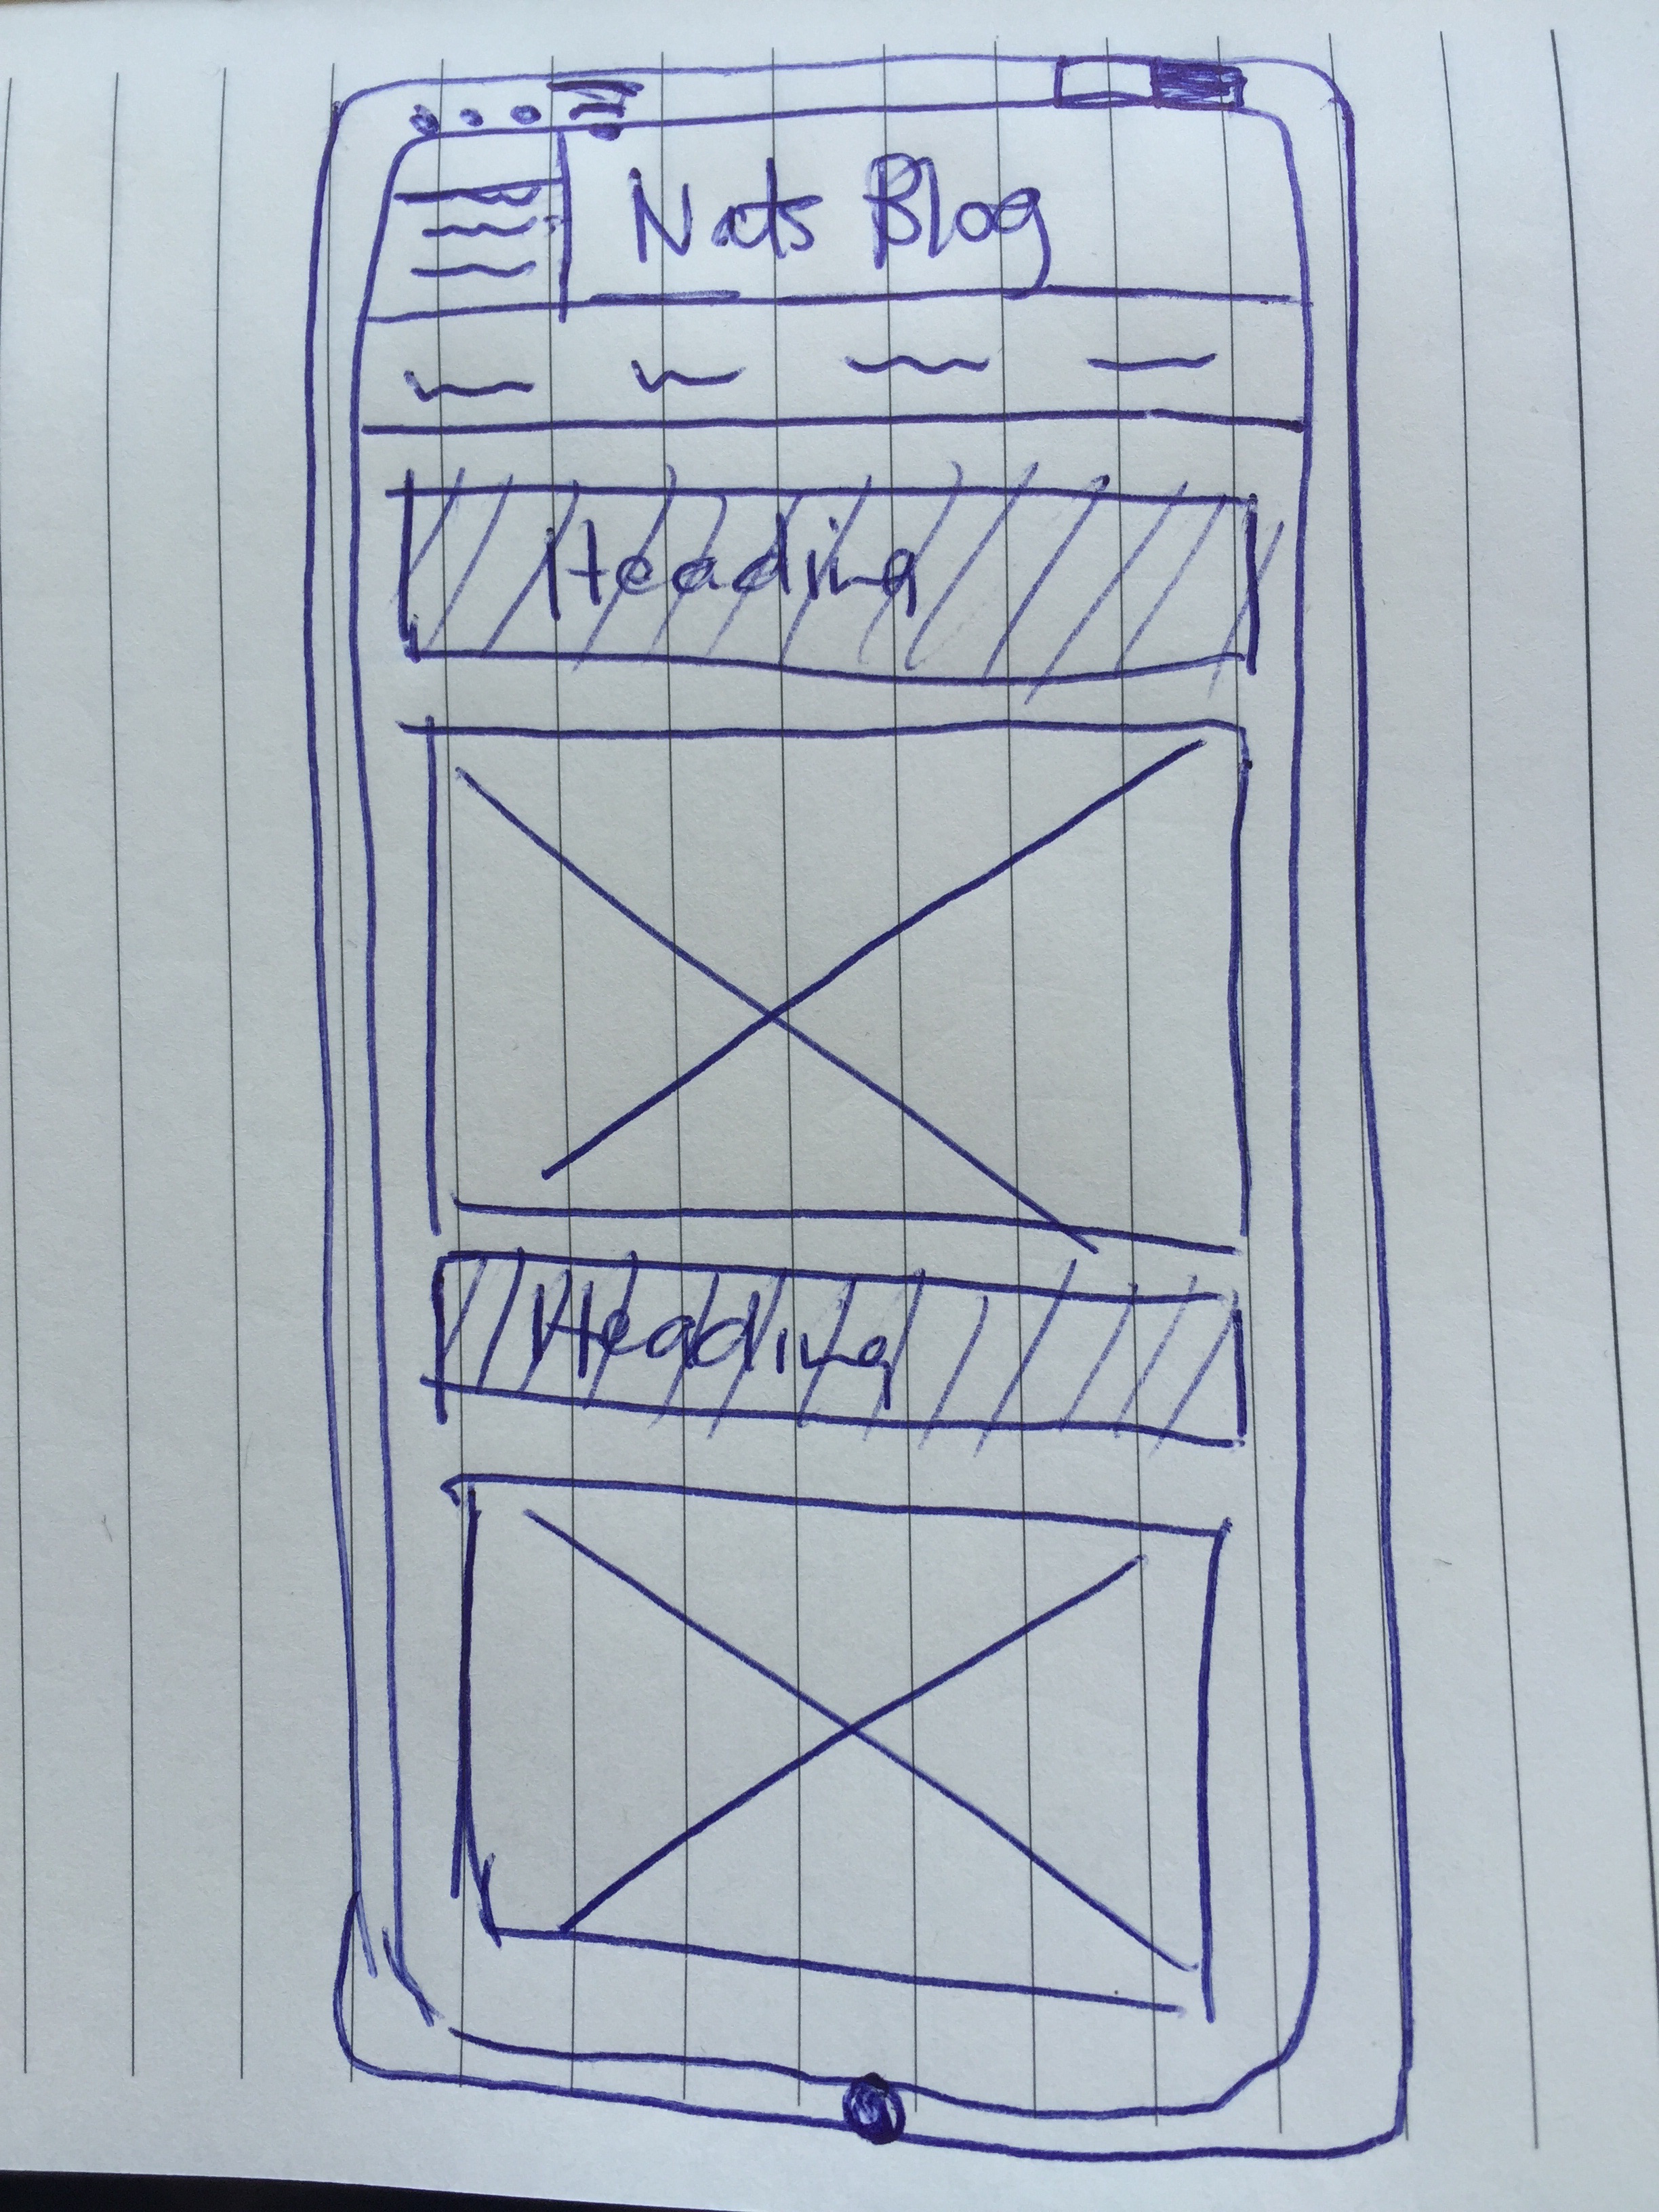 Nats Blog
Heading
Heading